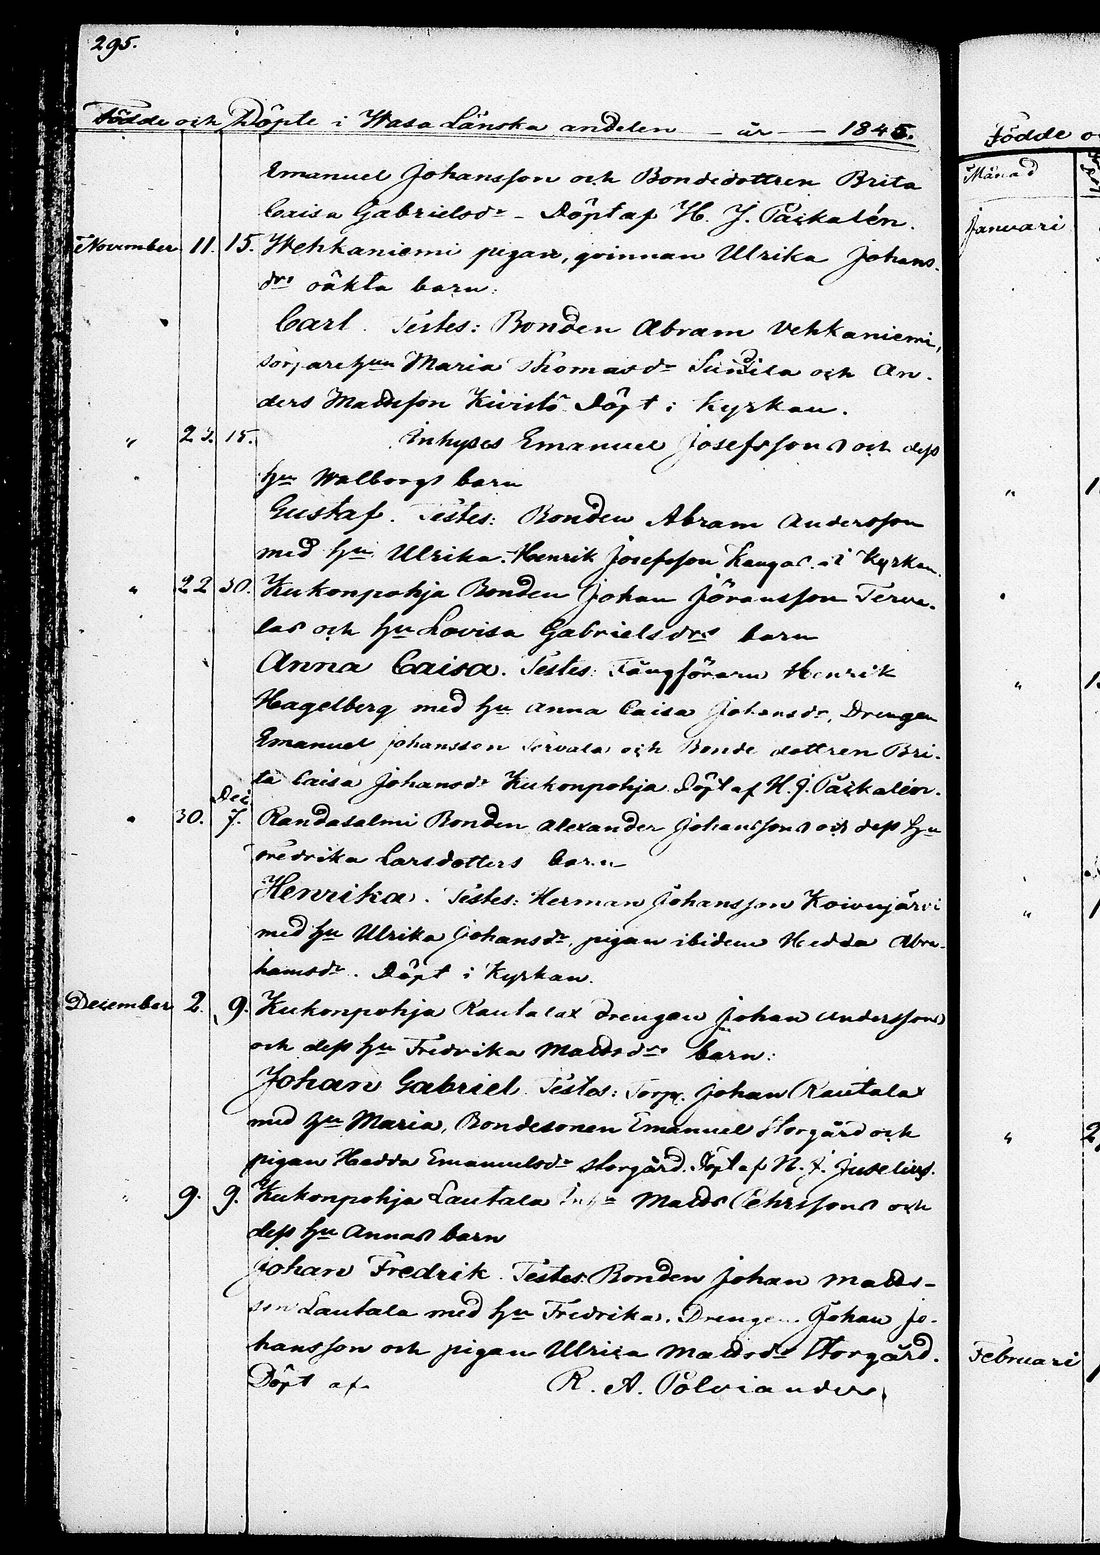 295.
Födde och Döpte i Wasa Länska andelen — år — 1845.
Emanuel Johansson och Bondedottren Brita
Caisa Gabrielsdr – Döpt af H. J. Paskalén.
November 11. 15. Wehkaniemi pigan, qvinnan Ulrika Johans-
drs oäkta barn:
Carl. Testes: Bonden Abram Vehkaniemi,
torparehun Maria Thomasdr Sundila och An-
ders Mattsson Kivistö Döpt i Kyrkan.
" 15. Inhyses Emanuel Josefssons och dess
hu Walborgs barn
Gustaf. Testes: Bonden Abram Andersson
med hu Ulrika. Henrik Josefsson Kangas i Kyrkan.
" 22 30. Kukonpohja Bonden Johan Jöransson Terva-
las och hu Lovisa Gabrielsdrs barn
Anna Caisa. Testes: Fångföraren Henrik
Hagelberg med hu Anna Caisa Johansdr, Drengen
Emanuel Johansson Tervala och Bonde dottren Bri-
ta Caisa Johansdr Kukonpohja. Döpt af H. J. Paskalén.
" 30. Dec. 7. Randasalmi Bonden Alexander Johanssons och dess hu
Fredrika Larsdotters barn
Henrika. Testes: Herman Johansson Koivujärvi
med hu Ulrika Johansdr, pigan ibidem Hedda Abra-
hamsdr. Döpt i Kyrkan.
December 2. 9. Kukonpohja Rautalax drengen Johan Anderssons
och dess hu Fredrika Mattsdrs barn:
Johan Gabriel. Testes: Torp. Johan Rautalax
med hu Maria, Bondesonen Emanuel Storgård och
pigan Hedda Emanuelsdr Storgård. Döpt af N. J. Juselius.
" 9. 9. Kukonpohja Lautala Matts och
dess hu Annas barn
Johan Fredrik. Testes: Bonden Johan Matts-
son Lautala med hu Fredrika. Drengen Johan Jo-
hansson och pigan Ulrica Mattsdr Storgård.
Döpt af R. A. Polviander.
Födde
Månad
Januari
"
"
"
"
Februari